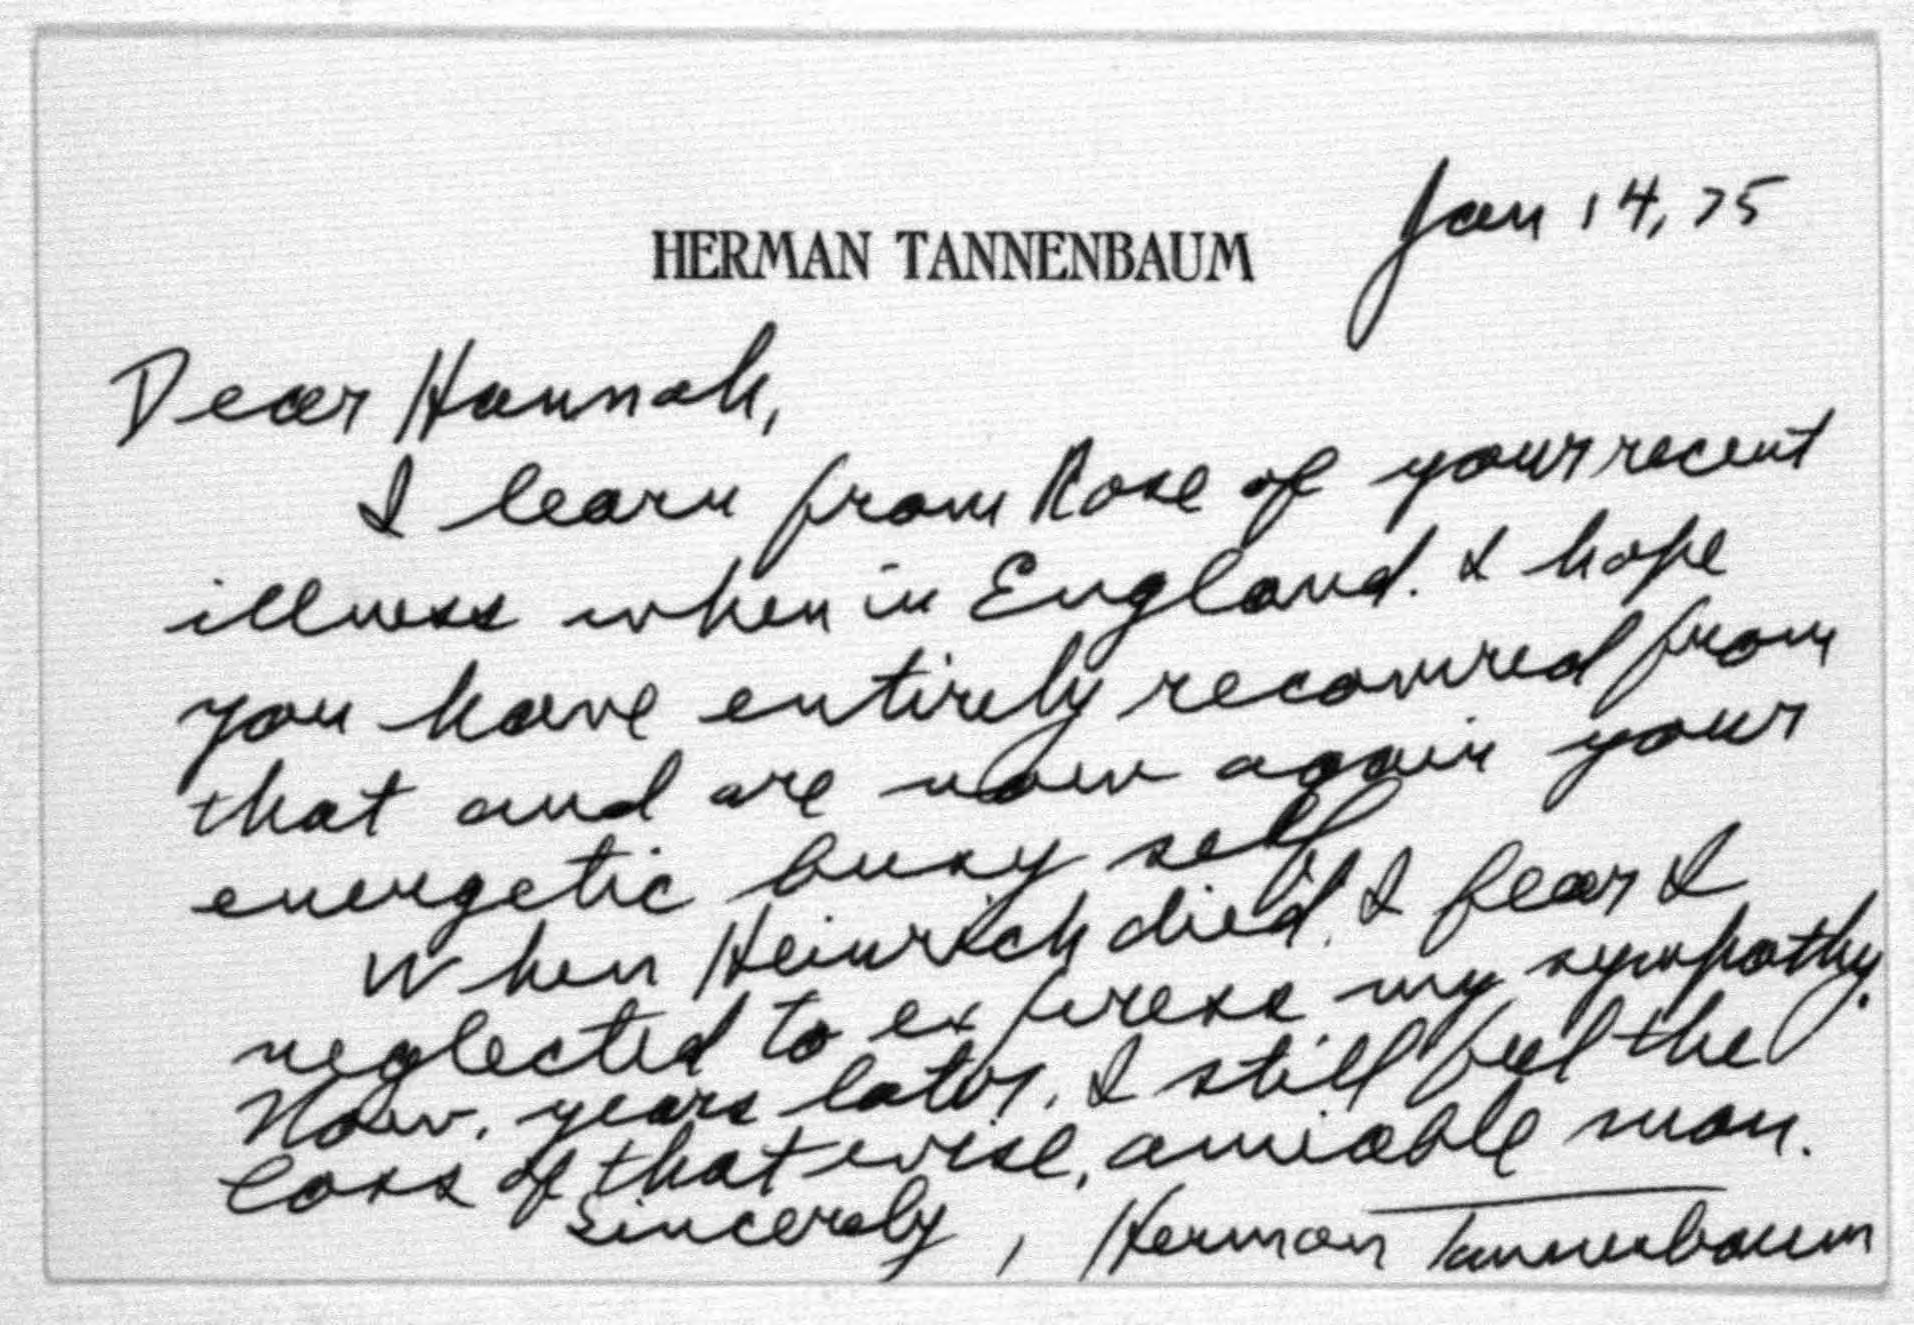 Jan 14, 75
HERMAN TANNENBAUM
Dear Hannah,
I learn from Rose of your recent
illness when in England. I hope
you have entirely recovered from
that and are now again your
energetic busy self.
When Heinrich died, I fear I
neglected to express my sympathy.
Now, years later, I still feel the
loss of that wise, amiable man.
Sincerely, Herman Tannenbaum